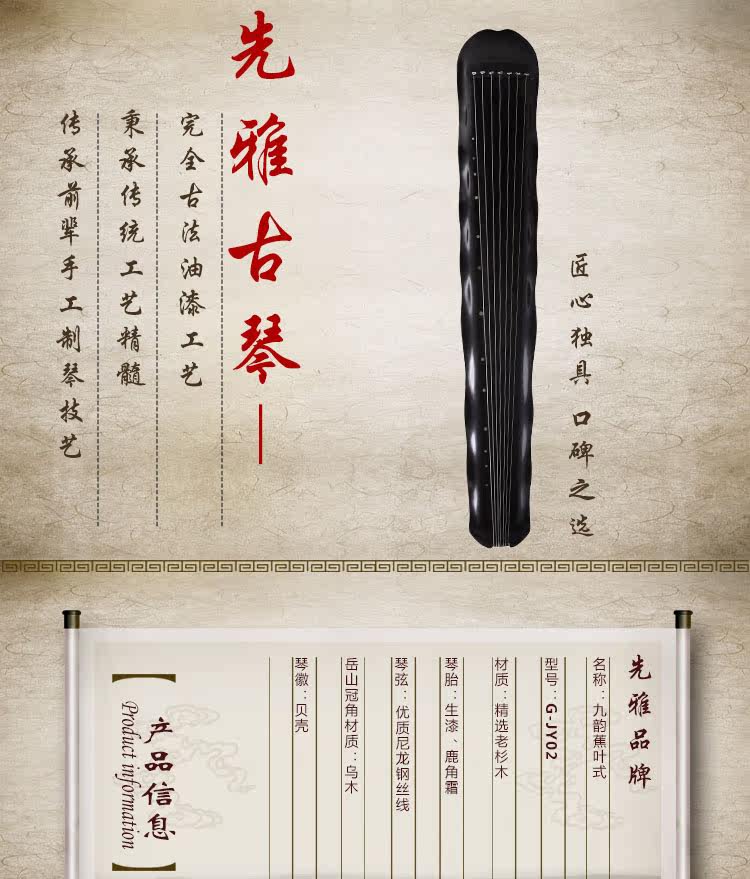 先雅古琴
完全古法油漆工艺
秉承传统工艺精髓
传承前辈手工制琴技艺
匠心独具 口碑之选
先雅品牌
名称：九韵蕉叶式
型号：G-JY02
材质：精选老杉木
琴胎：生漆、鹿角霜
琴弦：优质尼龙钢丝线
岳山冠角材质：乌木
琴徽：贝壳
产品信息
Product information